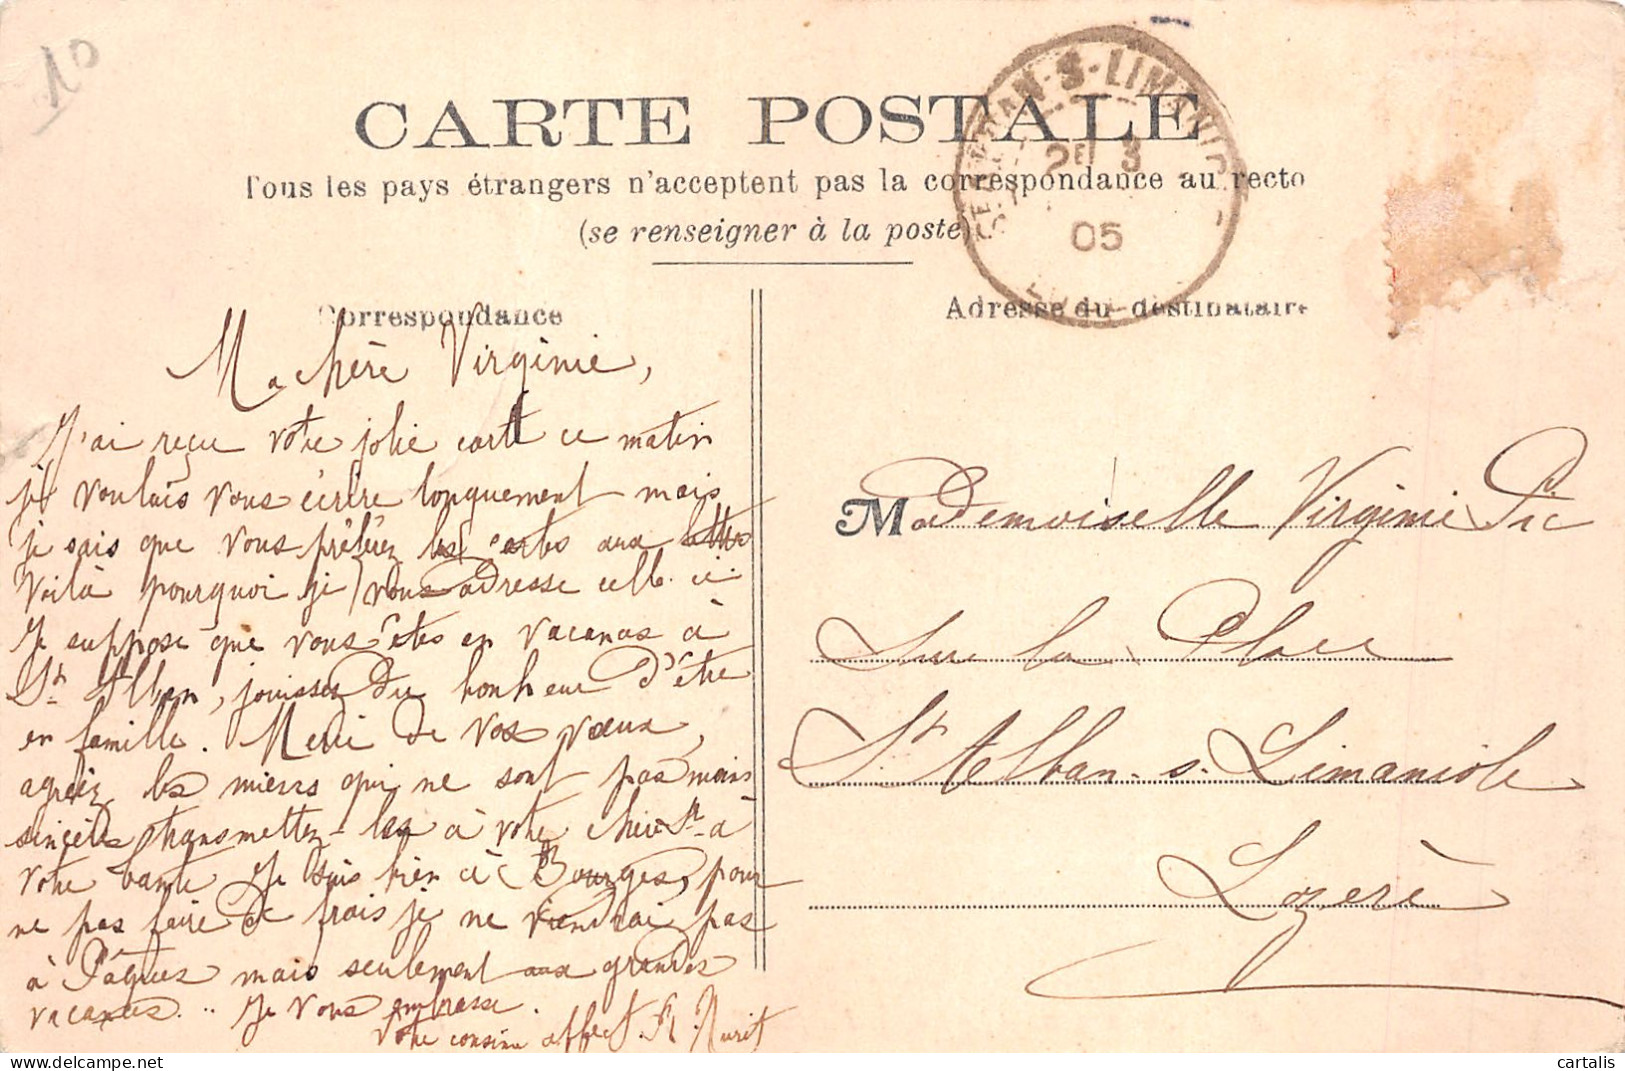 10
CARTE POSTALE
Tous les pays étrangers n'acceptent pas la correspondance au recto
(se renseigner à la poste)
S-LIMAN
2E 3
05
Correspondance
Ma chère Virginie,
J'ai reçu votre jolie carte ce matin
je voulais vous écrire longuement mais
je sais que vous préférez les cartes aux lettres
Voilà pourquoi je vous adresse celle-ci.
Je suppose que vous êtes en vacances à
St Alban, jouissez du bonheur d'être
en famille. Merci de vos vœux,
agréez les miens qui ne sont pas moins
sincères transmettez-les à votre chère St à
votre tante Je suis bien à Bourges, pour
ne pas faire de frais je ne viendrai pas
à Pâques mais seulement aux grandes
vacances... Je vous embrasse.
Votre cousine affect.
Adresse du destinataire
Mademoiselle Virginie Pic
Sur la Place
St Alban. s. Limaniole
Lozère
cartalis